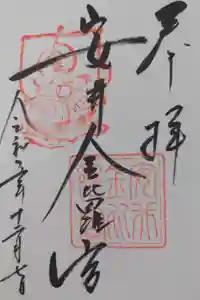 奉拝
安井金比羅宮
令和元年十二月七日